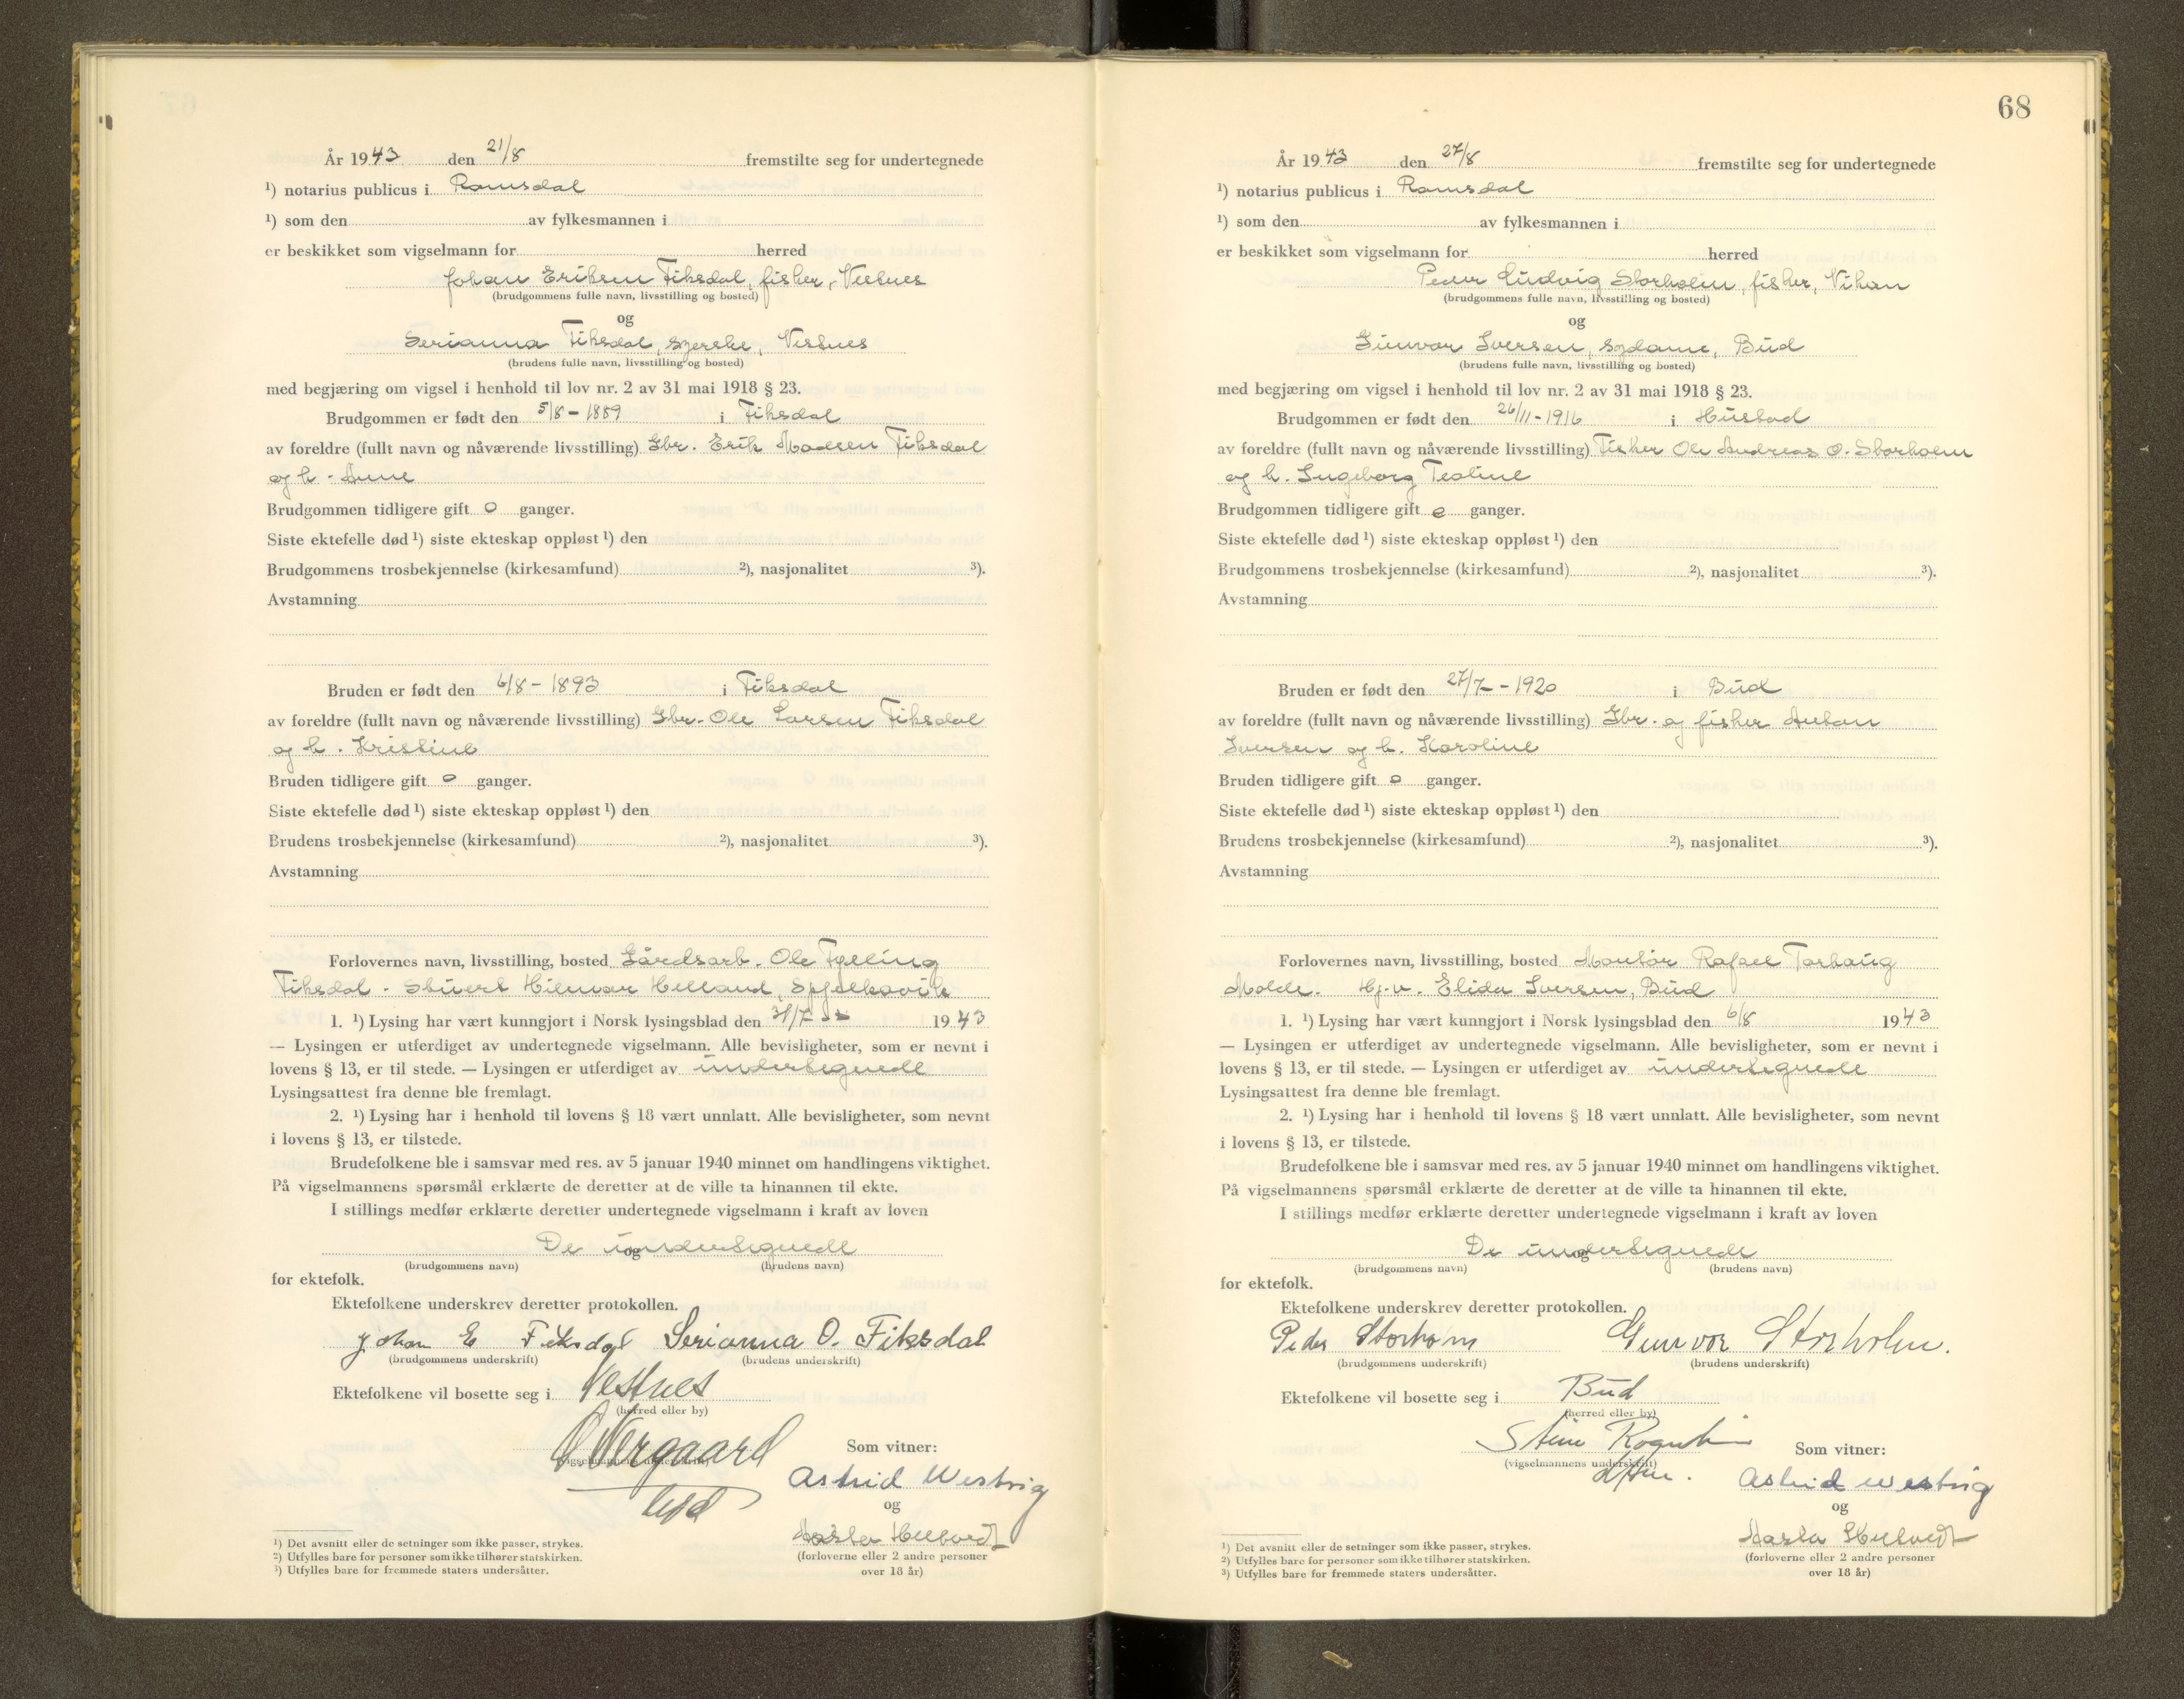 År 1943 den 21/8 fremstilte seg for undertegnede
¹) notarius publicus i Romsdal
¹) som den av fylkesmannen i
er beskikket som vigselmann for herred
Johan Eriksen Fiksdal, fisker, Vestnes
(brudgommens fulle navn, livsstilling og bosted)
og
Serianna Fiksdal, syerske, Vestnes
(brudens fulle navn, livsstilling og bosted)
med begjæring om vigsel i henhold til lov nr. 2 av 31 mai 1918 § 23.
Brudgommen er født den 5/8 - 1889 i Fiksdal
av foreldre (fullt navn og nåværende livsstilling) Gbr. Erik Madsen Fiksdal
og h. Anne
Brudgommen tidligere gift 0 ganger.
Siste ektefelle død ¹) siste ekteskap oppløst ¹) den
Brudgommens trosbekjennelse (kirkesamfund) ²), nasjonalitet ³).
Avstamning
Bruden er født den 6/8 - 1893 i Fiksdal
av foreldre (fullt navn og nåværende livsstilling) Gbr. Ole Larsen Fiksdal
og h. Kristine
Bruden tidligere gift 0 ganger.
Siste ektefelle død ¹) siste ekteskap oppløst ¹) den
Brudens trosbekjennelse (kirkesamfund) ²), nasjonalitet ³).
Avstamning
Forlovernes navn, livsstilling, bosted Gårdsarb. Ole Fylling
Fiksdal - stuert Hilmar Helland, Spjelkavik
1. ¹) Lysing har vært kunngjort i Norsk lysingsblad den 31/7 1943
— Lysingen er utferdiget av undertegnede vigselmann. Alle bevisligheter, som er nevnt i
lovens § 13, er til stede. — Lysingen er utferdiget av undertegnede
Lysingsattest fra denne ble fremlagt.
2. ¹) Lysing har i henhold til lovens § 18 vært unnlatt. Alle bevisligheter, som nevnt
i lovens § 13, er tilstede.
Brudefolkene ble i samsvar med res. av 5 januar 1940 minnet om handlingens viktighet.
På vigselmannens spørsmål erklærte de deretter at de ville ta hinannen til ekte.
I stillings medfør erklærte deretter undertegnede vigselmann i kraft av loven
De undertegnede
og
(brudgommens navn) (brudens navn)
for ektefolk.
Ektefolkene underskrev deretter protokollen.
Johan E Fiksdal Serianna O. Fiksdal
(brudgommens underskrift) (brudens underskrift)
Ektefolkene vil bosette seg i Vestnes
(herred eller by)
O Vergaard
(vigselmannens underskrift)
Som vitner:
Astrid Westvig
og
(forloverne eller 2 andre personer
over 18 år)
¹) Det avsnitt eller de setninger som ikke passer, strykes.
²) Utfylles bare for personer som ikke tilhører statskirken.
³) Utfylles bare for fremmede staters undersåtter.
68
År 1943 den 27/8 fremstilte seg for undertegnede
¹) notarius publicus i Romsdal
¹) som den av fylkesmannen i
er beskikket som vigselmann for herred
Peder Ludvig Storholm, fisker, Vikan
(brudgommens fulle navn, livsstilling og bosted)
og
Gunvor Iversen, sydame, Bud
(brudens fulle navn, livsstilling og bosted)
med begjæring om vigsel i henhold til lov nr. 2 av 31 mai 1918 § 23.
Brudgommen er født den 26/11 - 1916 i Hustad
av foreldre (fullt navn og nåværende livsstilling) Fisker Ole Andreas O. Storholm
og h. Ingeborg Tealine
Brudgommen tidligere gift 0 ganger.
Siste ektefelle død ¹) siste ekteskap oppløst ¹) den
Brudgommens trosbekjennelse (kirkesamfund) ²), nasjonalitet ³).
Avstamning
Bruden er født den 27/7 - 1920 i Bud
av foreldre (fullt navn og nåværende livsstilling) Gbr. og fisker Anton
Iversen og h. Karoline
Bruden tidligere gift 0 ganger.
Siste ektefelle død ¹) siste ekteskap oppløst ¹) den
Brudens trosbekjennelse (kirkesamfund) ²), nasjonalitet ³).
Avstamning
Forlovernes navn, livsstilling, bosted Montør Rafael Tarhaug
Molde. Hj.v. Elida Iversen, Bud
1. ¹) Lysing har vært kunngjort i Norsk lysingsblad den 6/8 1943
— Lysingen er utferdiget av undertegnede vigselmann. Alle bevisligheter, som er nevnt i
lovens § 13, er til stede. — Lysingen er utferdiget av undertegnede
Lysingsattest fra denne ble fremlagt.
2. ¹) Lysing har i henhold til lovens § 18 vært unnlatt. Alle bevisligheter, som nevnt
i lovens § 13, er tilstede.
Brudefolkene ble i samsvar med res. av 5 januar 1940 minnet om handlingens viktighet.
På vigselmannens spørsmål erklærte de deretter at de ville ta hinannen til ekte.
I stillings medfør erklærte deretter undertegnede vigselmann i kraft av loven
De undertegnede
og
(brudgommens navn) (brudens navn)
for ektefolk.
Ektefolkene underskrev deretter protokollen.
Peder Storholm Gunvor Storholm.
(brudgommens underskrift) (brudens underskrift)
Ektefolkene vil bosette seg i Bud
(herred eller by)
(vigselmannens underskrift)
Som vitner:
Astrid Westvig
og
(forloverne eller 2 andre personer
over 18 år)
¹) Det avsnitt eller de setninger som ikke passer, strykes.
²) Utfylles bare for personer som ikke tilhører statskirken.
³) Utfylles bare for fremmede staters undersåtter.